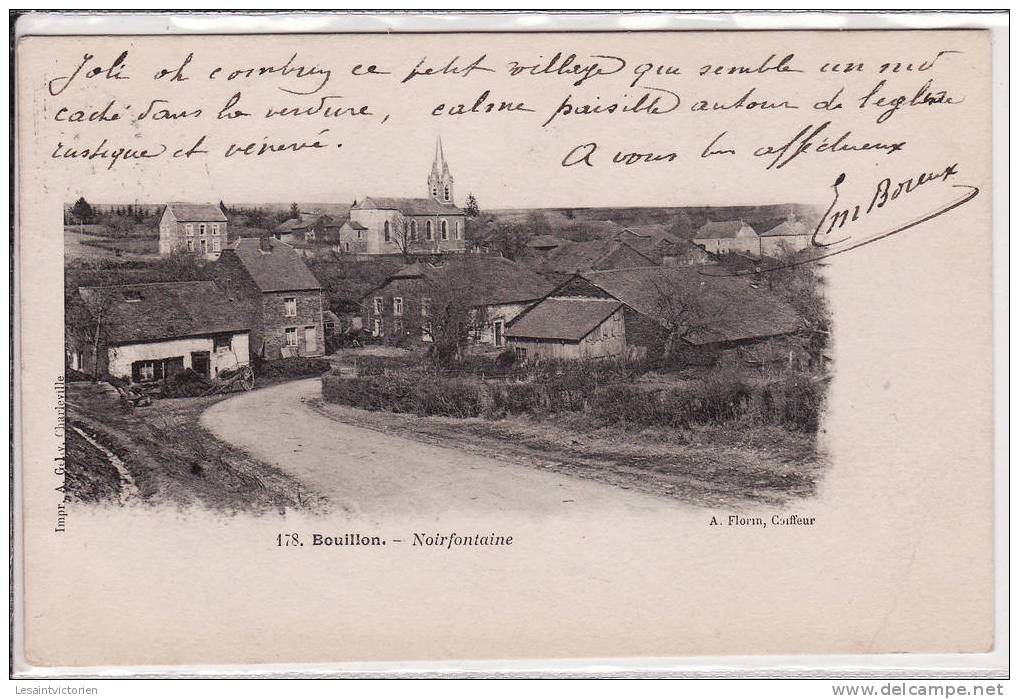 Joli oh combien ce petit village qui semble un nid
caché dans la verdure, calme paisible autour de l'eglise
rustique et vénéré.
A vous bn affectueux
Em Boreux
Impr. A. Gely, Charleville
A. Florin, Coiffeur
178. Bouillon. — Noirfontaine
Lesaintvictorien
http://www.delcampe.net